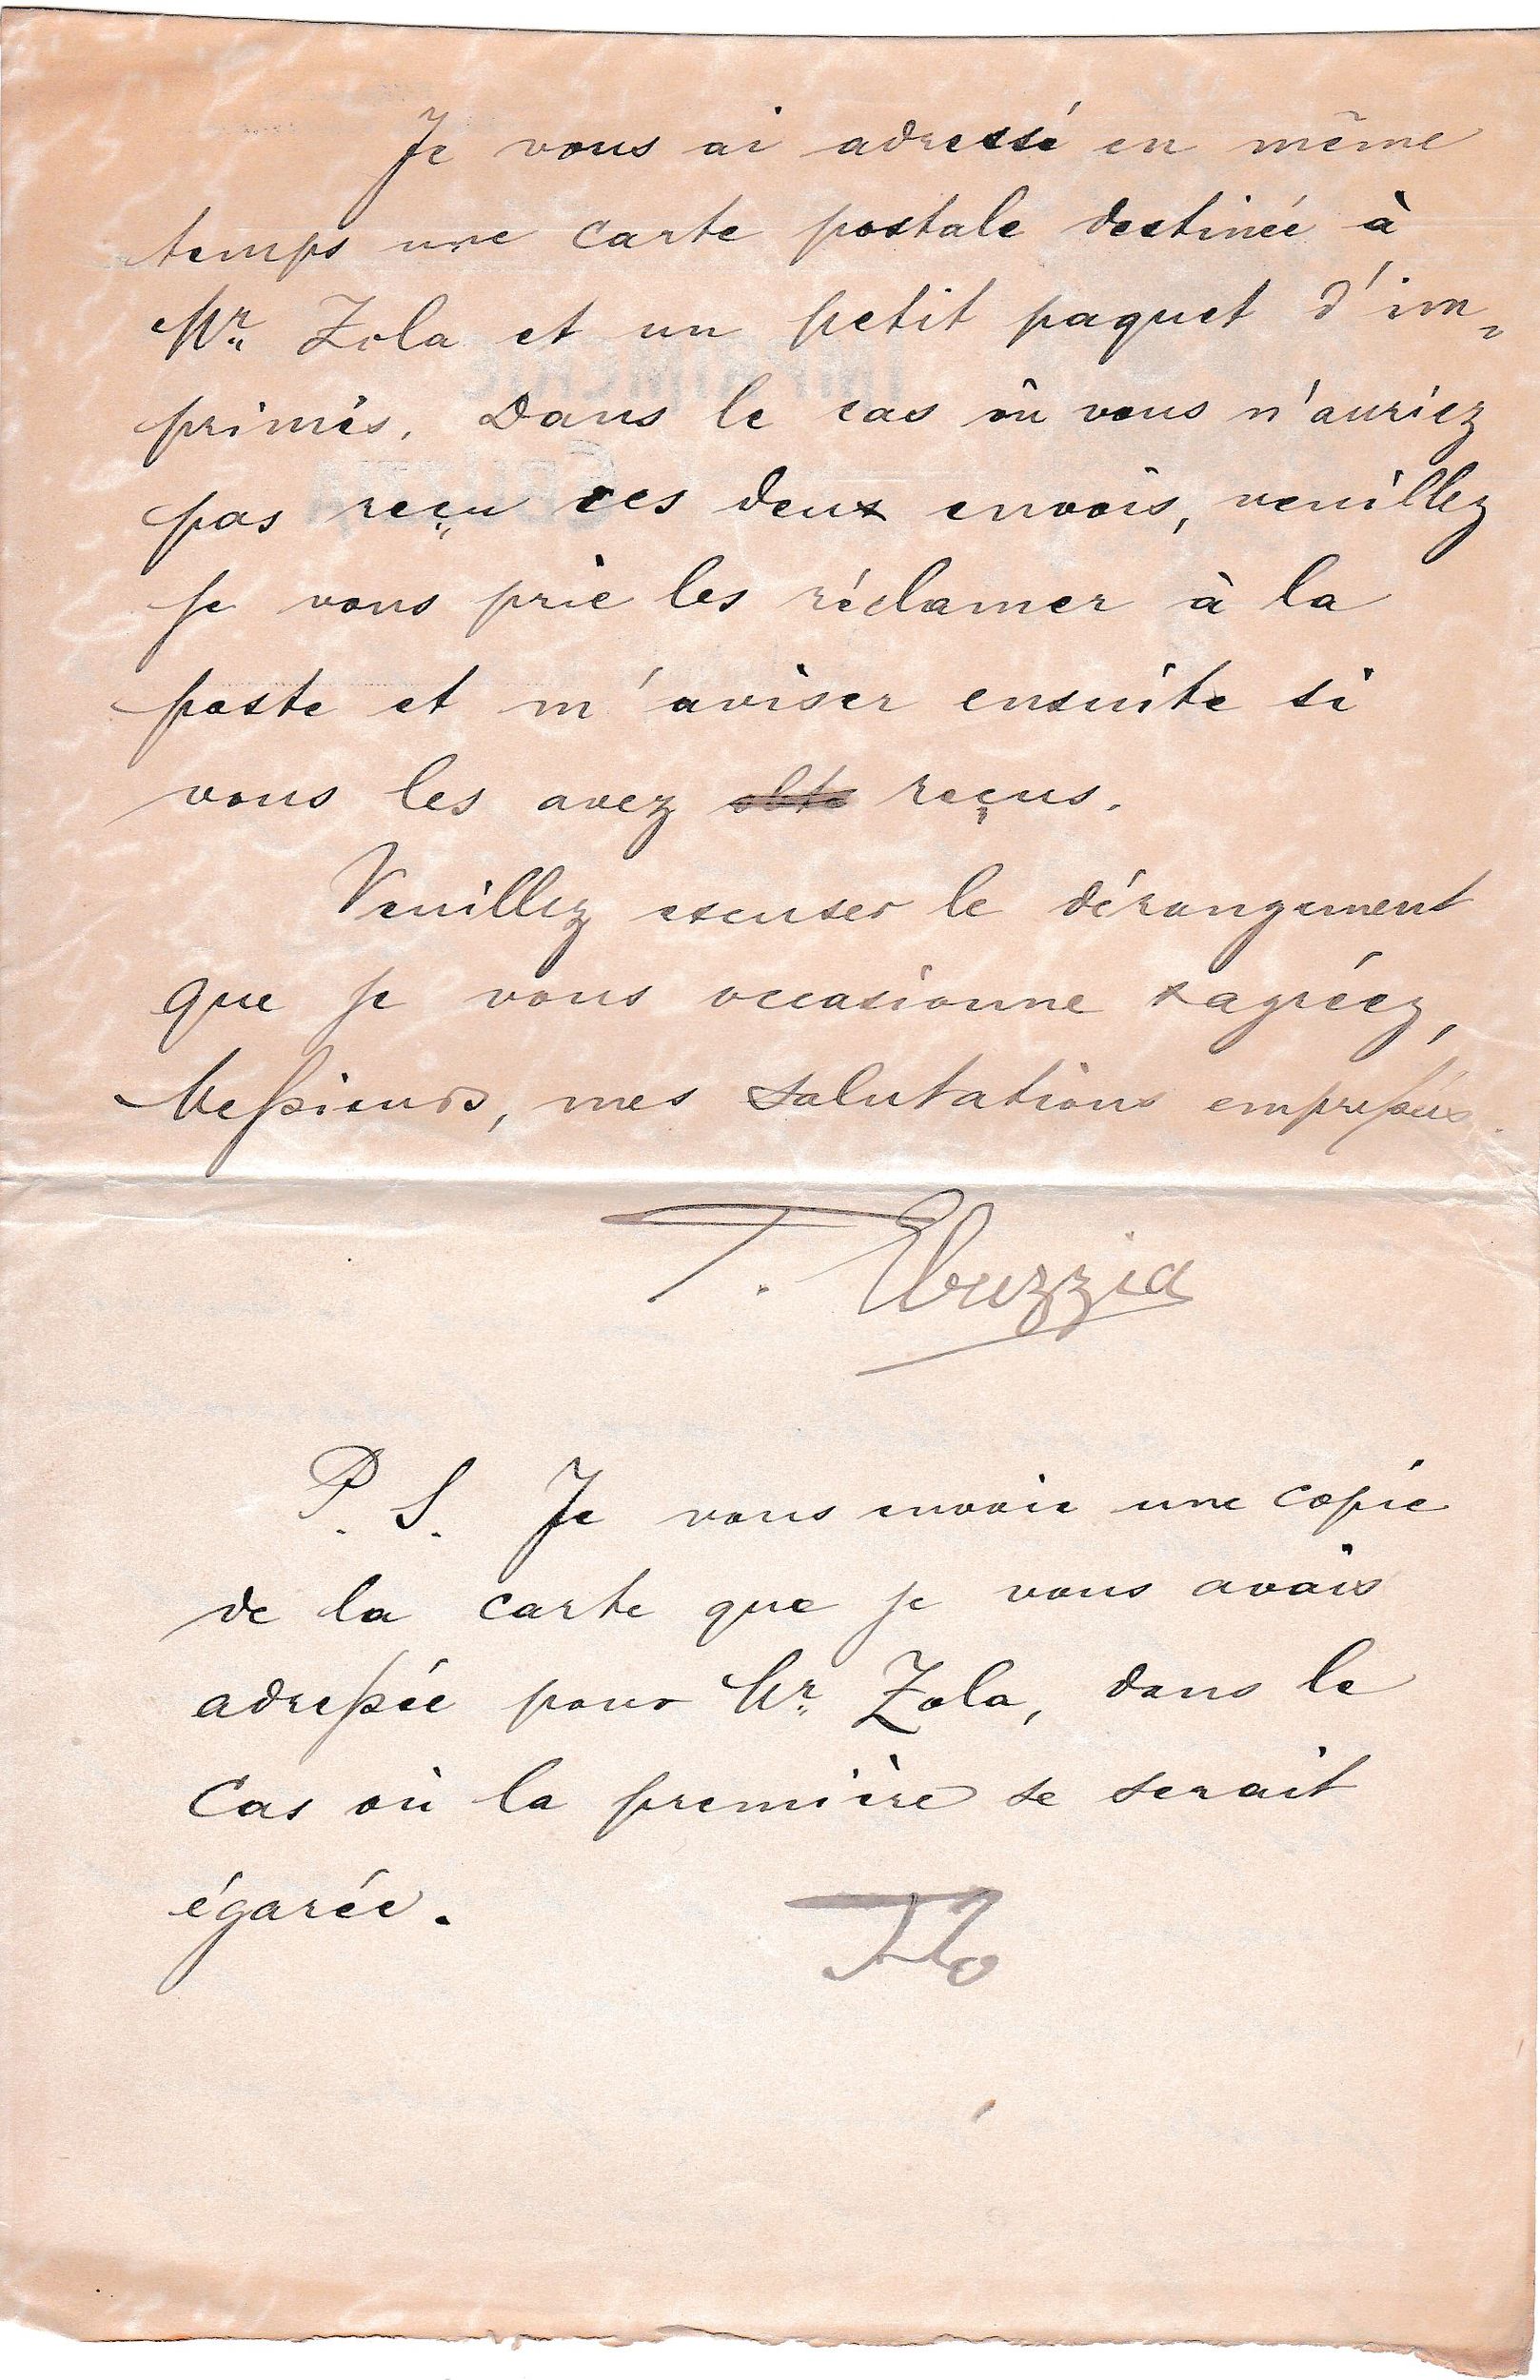 Je vous ai adressé en même
temps une carte postale destinée à
Mr. Zola et un petit paquet d'im=
primés. Dans le cas où vous n'auriez
pas reçu ces deux envois, veuillez
je vous prie les réclamer à la
poste et m'aviser ensuite si
vous les avez reçus.
Veuillez excuser le dérangement
que je vous occasionne & agréez,
Messieurs, mes salutations empressées.
T. Ebuzzia
P. S. Je vous envoie une copie
de la carte que je vous avais
adressée pour Mr. Zola, dans le
cas où la première se serait
égarée.